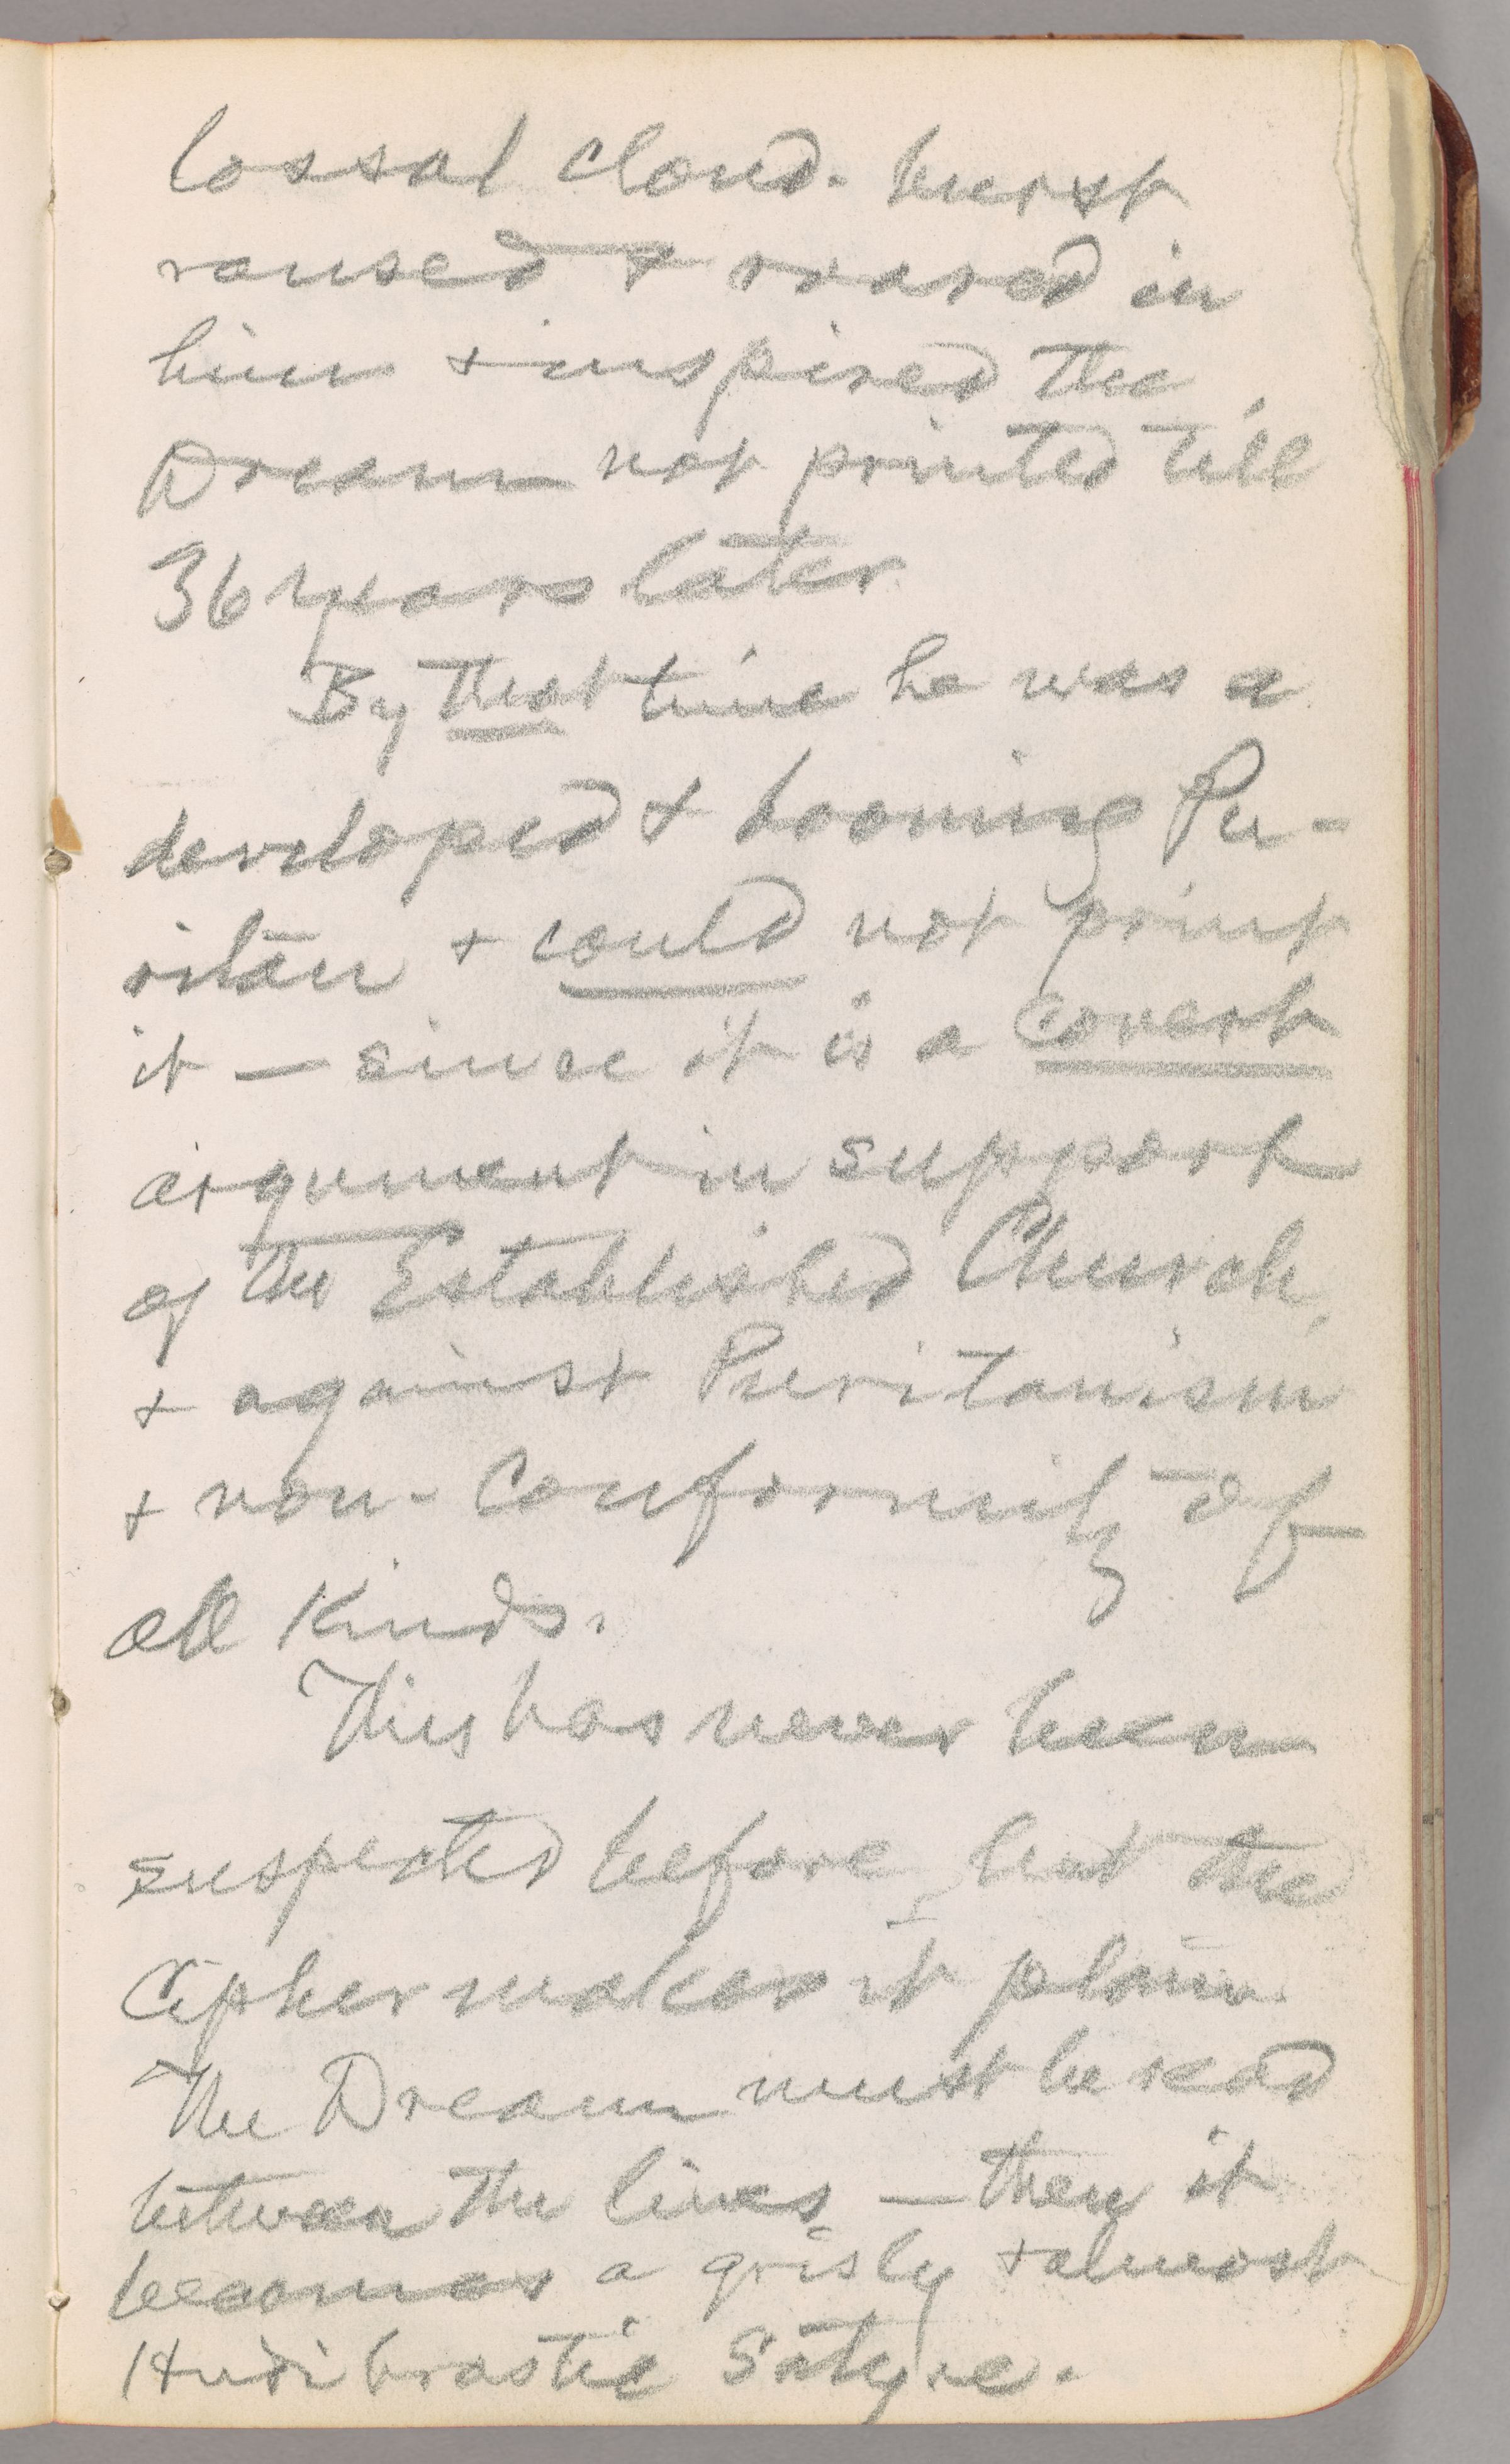 lossal cloud-burst
roused & roared in
him & inspired the
Dream not printed till
36 years later.
By that time he was a
developed & booming Pu-
ritan & could not print
it — since it is a covert
argument in support
of the Established Church,
& against Puritanism
& non-Conformity of
all kinds.
This has never been
suspected before, but the
Cipher makes it plain.
The Dream must be read
between the lines — then it
becomes a grisly & almost
Hudibrastic Satyre.